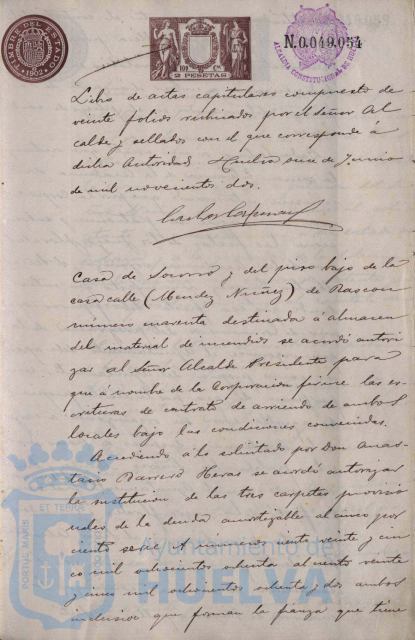 TIMBRE DEL ESTADO
1902
2 PESETAS
N.0.049.054
ALCALDIA CONSTITUCIONAL DE HUELVA
Libro de actas capitulares compuesto de
veinte folios rubricados por el señor Al
calde y sellados con el que corresponde á
dicha Autoridad Huelva once de Junio
de mil novecientos dos.
Casa de Socorro y del piso bajo de la
casa calle (Mendez Nuñez) de Rascon
número cuarenta destinada á almacen
del material de incendios se acordó autori
zar al Señor Alcalde Presidente para
que á nombre de la Corporacion firme las es
crituras de contrato de arriendo de ambos
locales bajo las condiciones convenidas.
Accediendo á lo solicitado por Don Anas
tacio Barrero Heras se acordó autorizar
la sustitucion de las tres carpetas provisio
nales de la deuda amortizable al cinco por
ciento serie A números ciento veinte y cin
co mil ochocientos ochenta al ciento veinte
y cinco mil ochocientos ochenta y dos ambos
inclusive que forman la fianza que tiene
PORTUS MARIS ET TERRE CUSTODIA
Ayuntamiento de
HUELVA